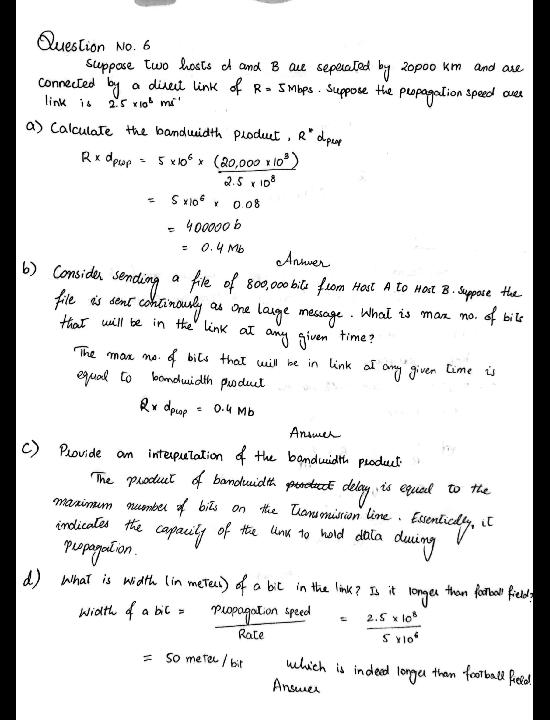 Question No. 6
Suppose two hosts A and B are seperated by 20000 km and are
connected by a direct link of R = 5 Mbps. Suppose the propagation speed over
link is 2.5 x 10⁸ ms⁻¹
a) Calculate the bandwidth product, R* dprop
R x dprop = 5 x10⁶ x (20,000 x 10³)
2.5 x 10⁸
= 5 x10⁶ x 0.08
= 400000 b
= 0.4 Mb
Answer
b) Consider sending a file of 800,000 bits from Host A to Host B. Suppose the
file is sent continously as one large message. What is max no. of bits
that will be in the link at any given time?
The max no. of bits that will be in link at any given time is
equal to bandwidth product
R x dprop = 0.4 Mb
Answer
c) Provide an interpretation of the bandwidth product.
The product of bandwidth product delay, is equal to the
maximum number of bits on the transmission line. Essentially, it
indicates the capacity of the link to hold data during
propagation.
d) What is width (in meters) of a bit in the link? Is it longer than football field?
width of a bit = propagation speed = 2.5 x 10⁸
Rate 5 x10⁶
= 50 meter/bit which is indeed longer than football field.
Answer